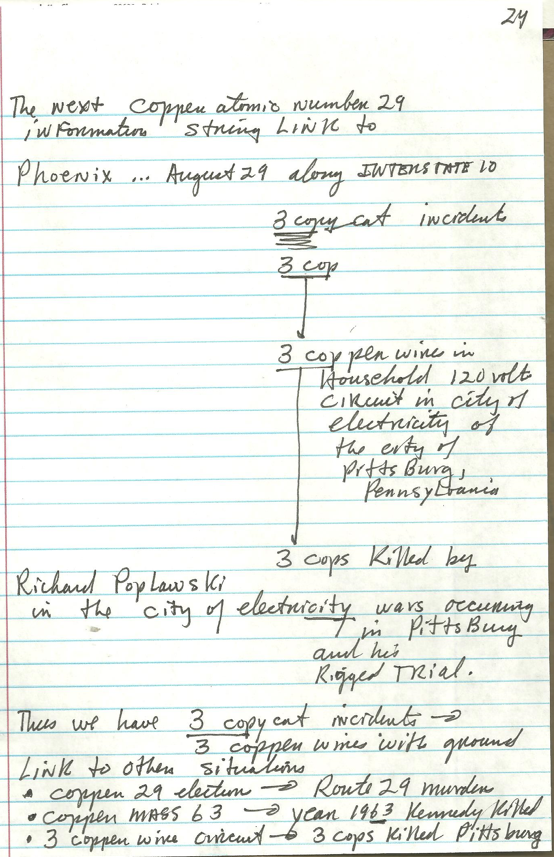 24
The next coppen atomic number 29
information string LINK to
Phoenix ... August 29 along INTERSTATE 10
3 copy cat incidents
3 cop
3 coppen wires in
Household 120 volt
circuit in city of
electricity of
the city of
PittsBurg,
Pennsylvania
3 cops Killed by
Richard Poplawski
in the city of electricity wars occuring
in PittsBurg
and his
Rigged TRial.
Thus we have 3 copycat incidents →
3 coppen wires with ground
LINK to other situations
• coppen 29 election → Route 29 murders
• coppen MASS 63 → year 1963 Kennedy Killed
• 3 coppen wire circuit → 3 cops Killed Pittsburg